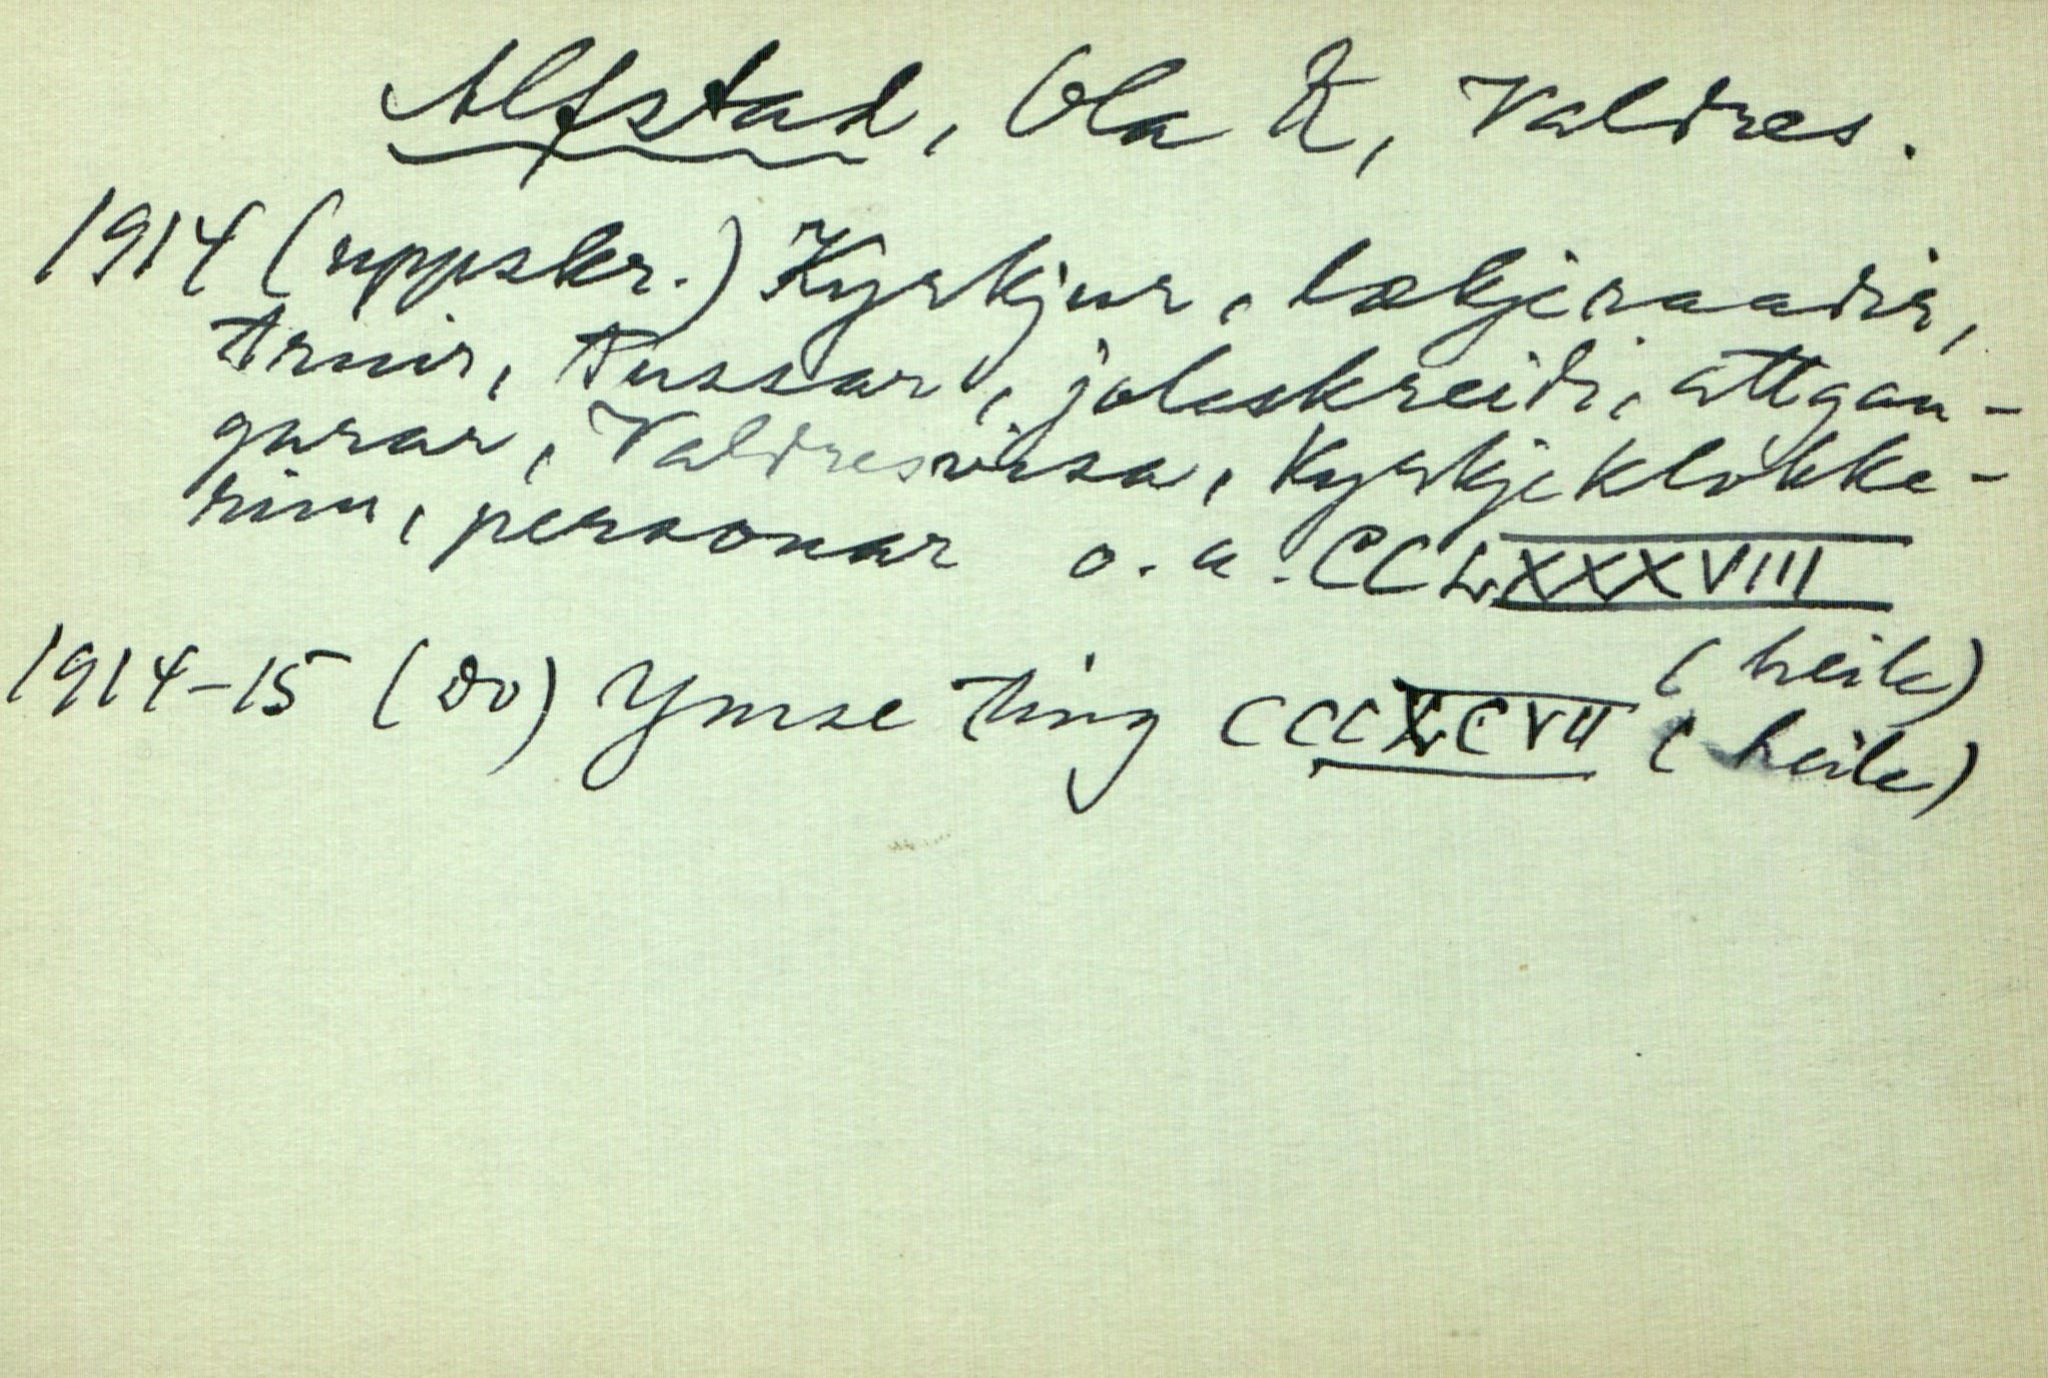 Alfstad, Ola K, Valdres.
1914 (uppskr.) Kyrkjur, lækjeraadir,
truir, tussar, joleskreidi, attgan-
garar, Valdresvisa, Kyrkjeklokke-
rim, personar o. a. CCLXXXVIII
(heile)
1914-15 (do) Ymse ting CCCXCVII (heile)